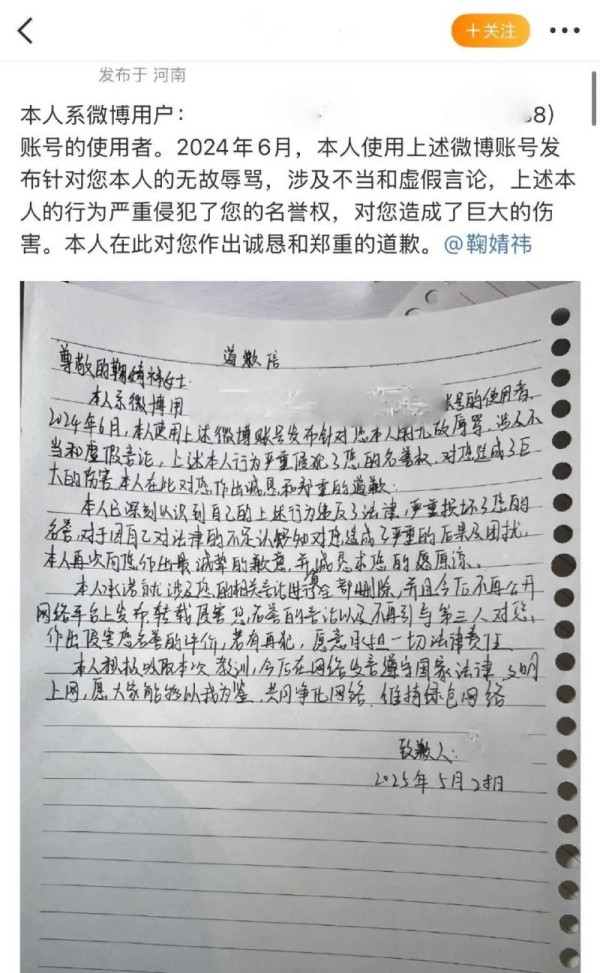 +关注
发布于 河南
本人系微博用户：
8)
账号的使用者。2024年6月，本人使用上述微博账号发
布针对您本人的无故辱骂，涉及不当和虚假言论，上述本
人的行为严重侵犯了您的名誉权，对您造成了巨大的伤
害。本人在此对您作出诚恳和郑重的道歉。@鞠婧祎
道歉信
尊敬的鞠婧祎女士
本人系微博用
账号的使用者.
2024年6月,本人使用上述微博账号发布针对您本人的无故辱骂,涉及不
当和虚假言论,上述本人行为严重侵犯了您的名誉权,对您造成了巨
大的伤害本人在此对您作出诚恳和郑重的道歉:
本人已深刻认识到自己的上述行为违反了法律,严重损坏了您的
名誉,对于因自己对法律的不足认知对您造成了严重的后果及困扰,
本人再次向您作出最诚挚的歉意,并诚恳求您的原谅.
本人承诺就涉及您的相关言论全部删除,并且今后不再公开
网络平台上发布,转载侵害您名誉的言论以及不再引导第三人对您,
作出侵害您名誉的评价,若有再犯,愿意承担一切法律责任
本人积极吸取本次教训,今后在网络发言遵守国家法律,文明
上网,愿大家能够以我为鉴,共同净化网络,维持绿色网络
致歉人:
2025年5月2日